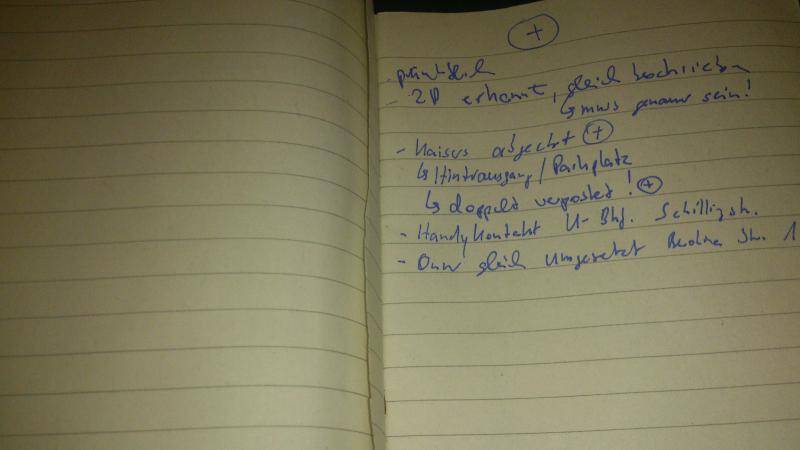 +
pünktlich
- ZP erkannt, gleich beschrieben
↳ muss genauer sein!
- Kaisers abgesetzt +
↳ Hinterausgang / Parkplatz
↳ doppelt verpostet! +
- Handykontakt U-Bhf. Schillingstr.
- gleich umgesetzt Str. 1